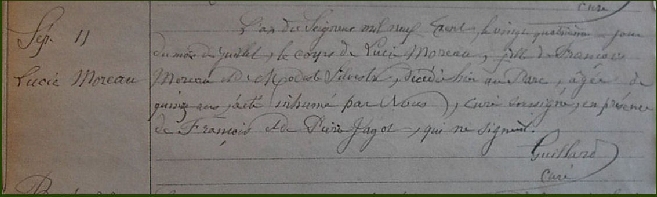 Curé
Sép. 11
Lucie Moreau
L'an du Seigneur mil neuf cent, le vingt quatrième jour
du mois de juillet, le corps de Lucie Moreau, fille de François
Moreau et de Modeste, décédée hier au Parc, âgée de
quinze ans, a été inhumé par Nous, curé soussigné, en présence
de François et de Pierre Jagot, qui ne signent.
Guillard
Curé